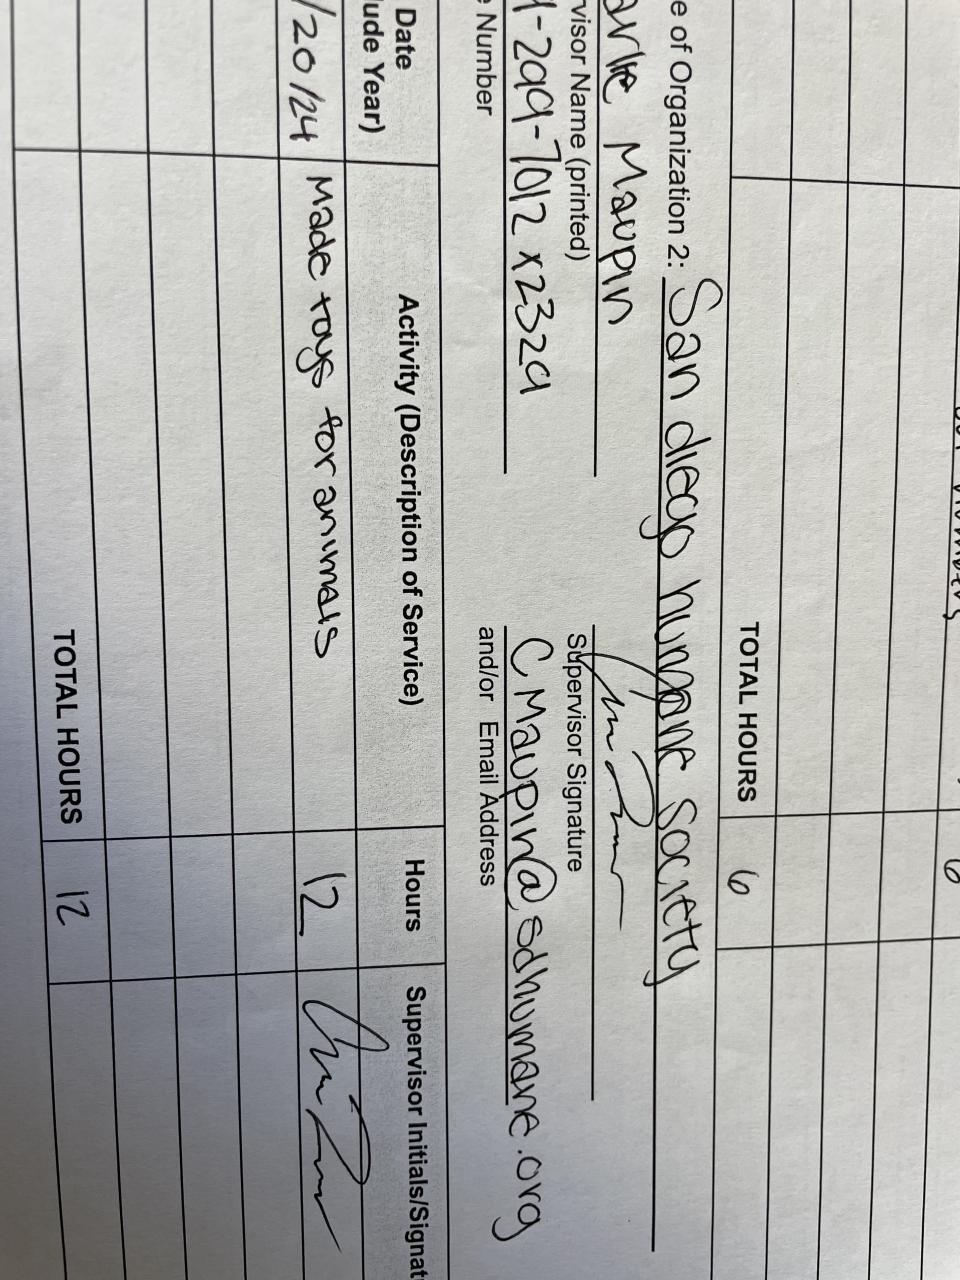 6
TOTAL HOURS 6
e of Organization 2: San diego humane society
Maupin
visor Name (printed) Supervisor Signature
-299-7012 x2329 CMaupin@sdhumane.org
e Number and/or Email Address
Date Activity (Description of Service) Hours Supervisor Initials/Signat
ude Year)
/20/24 Made toys for animals 12
TOTAL HOURS 12